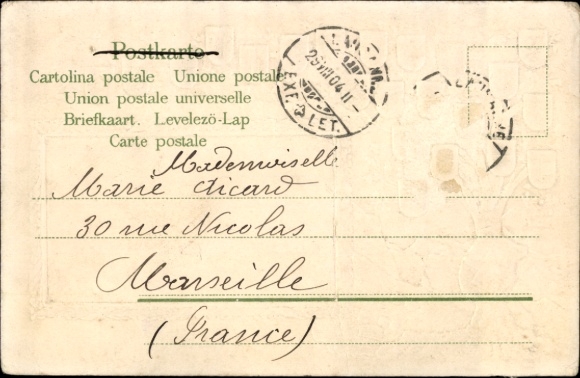 Postkarte
Cartolina postale Unione postale
Union postale universelle
Briefkaart. Levelezö-Lap
Carte postale
EXP. LET.
Mademoiselle
Marie Aicard
30 rue Nicolas
Marseille
(France)